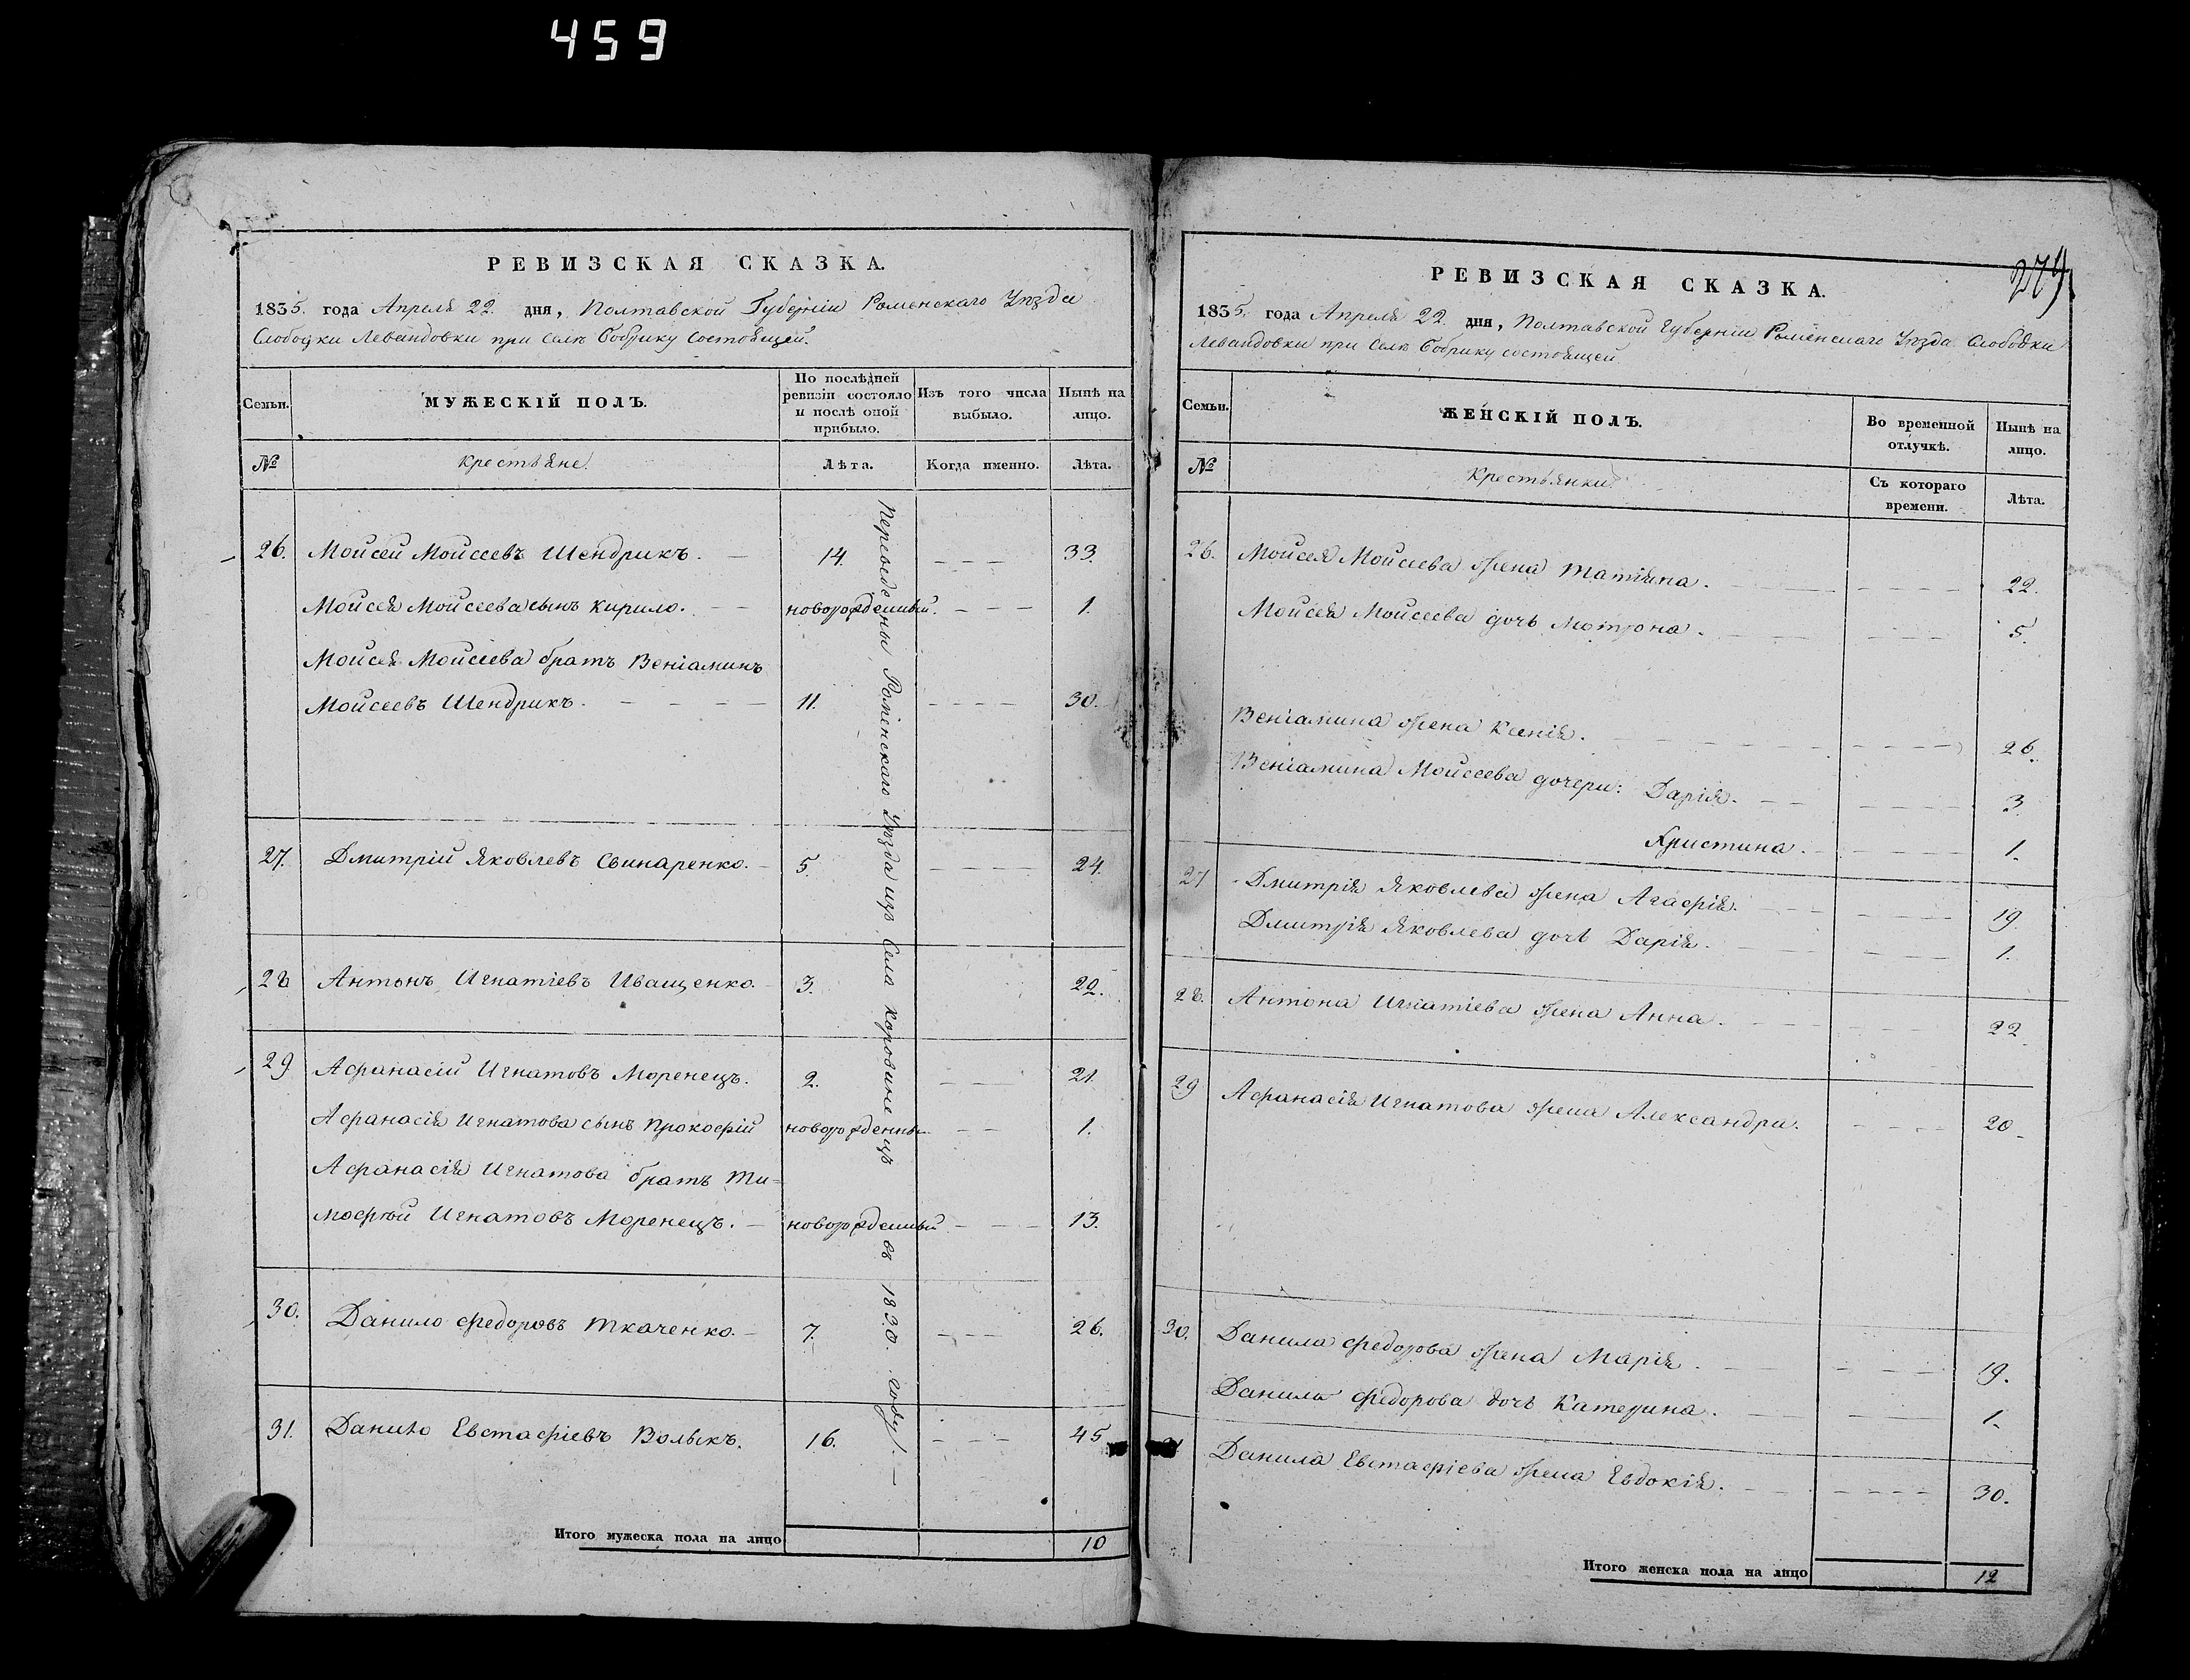 459
РЕВИЗСКАЯ СКАЗКА.
1835. года Апреля 22. дня, Полтавской Губерніи Роменскаго Уѣзда
Слободки Левандовки при селѣ Бобрику состоящей.
Семьи. МУЖЕСКІЙ ПОЛЪ. По послѣдней ревизіи состояло и послѣ оной прибыло. Изъ того числа выбыло. Нынѣ на лицо.
№ Крестьяне. Лѣта. Когда именно. Лѣта.
26. Моисей Моисеевъ Шендрикъ. 14. 33.
Моисея Моисеева сынъ Кирило. новорожденный. 1.
Моисея Моисеева братъ Веніаминъ
Моисеевъ Шендрикъ. 11. 30.
27. Дмитрій Яковлевъ Свинаренко. 5. 24.
28 Антонъ Игнатіевъ Иващенко. 3. 22.
29 Афанасій Игнатовъ Моренецъ. 2. 21.
Афанасія Игнатова сынъ Прокофій новорожденны 1.
Афанасія Игнатова братъ Ти-
мофѣй Игнатовъ Моренецъ. новорожденный 13.
30. Данило Федоровъ Ткаченко. 7. 26.
31. Данило Евстафіевъ Волыкъ. 16. 45
Переведены Роменскаго Уѣзда изъ Села Коровинецъ въ 1830. году.
Итого мужеска пола на лицо 10
379
РЕВИЗСКАЯ СКАЗКА.
1835. года Апреля 22. дня, Полтавской Губерніи Роменскаго Уѣзда Слободки
Левандовки при селѣ Бобрику состоящей
Семьи. ЖЕНСКІЙ ПОЛЪ. Во временной отлучкѣ. Нынѣ на лицо.
№ Крестьянки. Съ котораго времени. Лѣта.
26. Моисея Моисеева жена Татіяна. 22.
Моисея Моисеева дочь Мотрона. 5.
Веніамина жена Ксенія. 26.
Веніамина Моисеева дочери: Дарія. 3
Христина. 1.
27 Дмитрія Яковлева жена Агафія. 19
Дмитрія Яковлева дочь Дарія. 1.
28. Антона Игнатіева жена Анна. 22
29 Афанасія Игнатова жена Александра. 20
30. Данила Федорова жена Марія. 19.
Данила Федорова дочь Катерина. 1.
Данила Евстафіева жена Евдокія. 30.
Итого женска пола на лицо 12